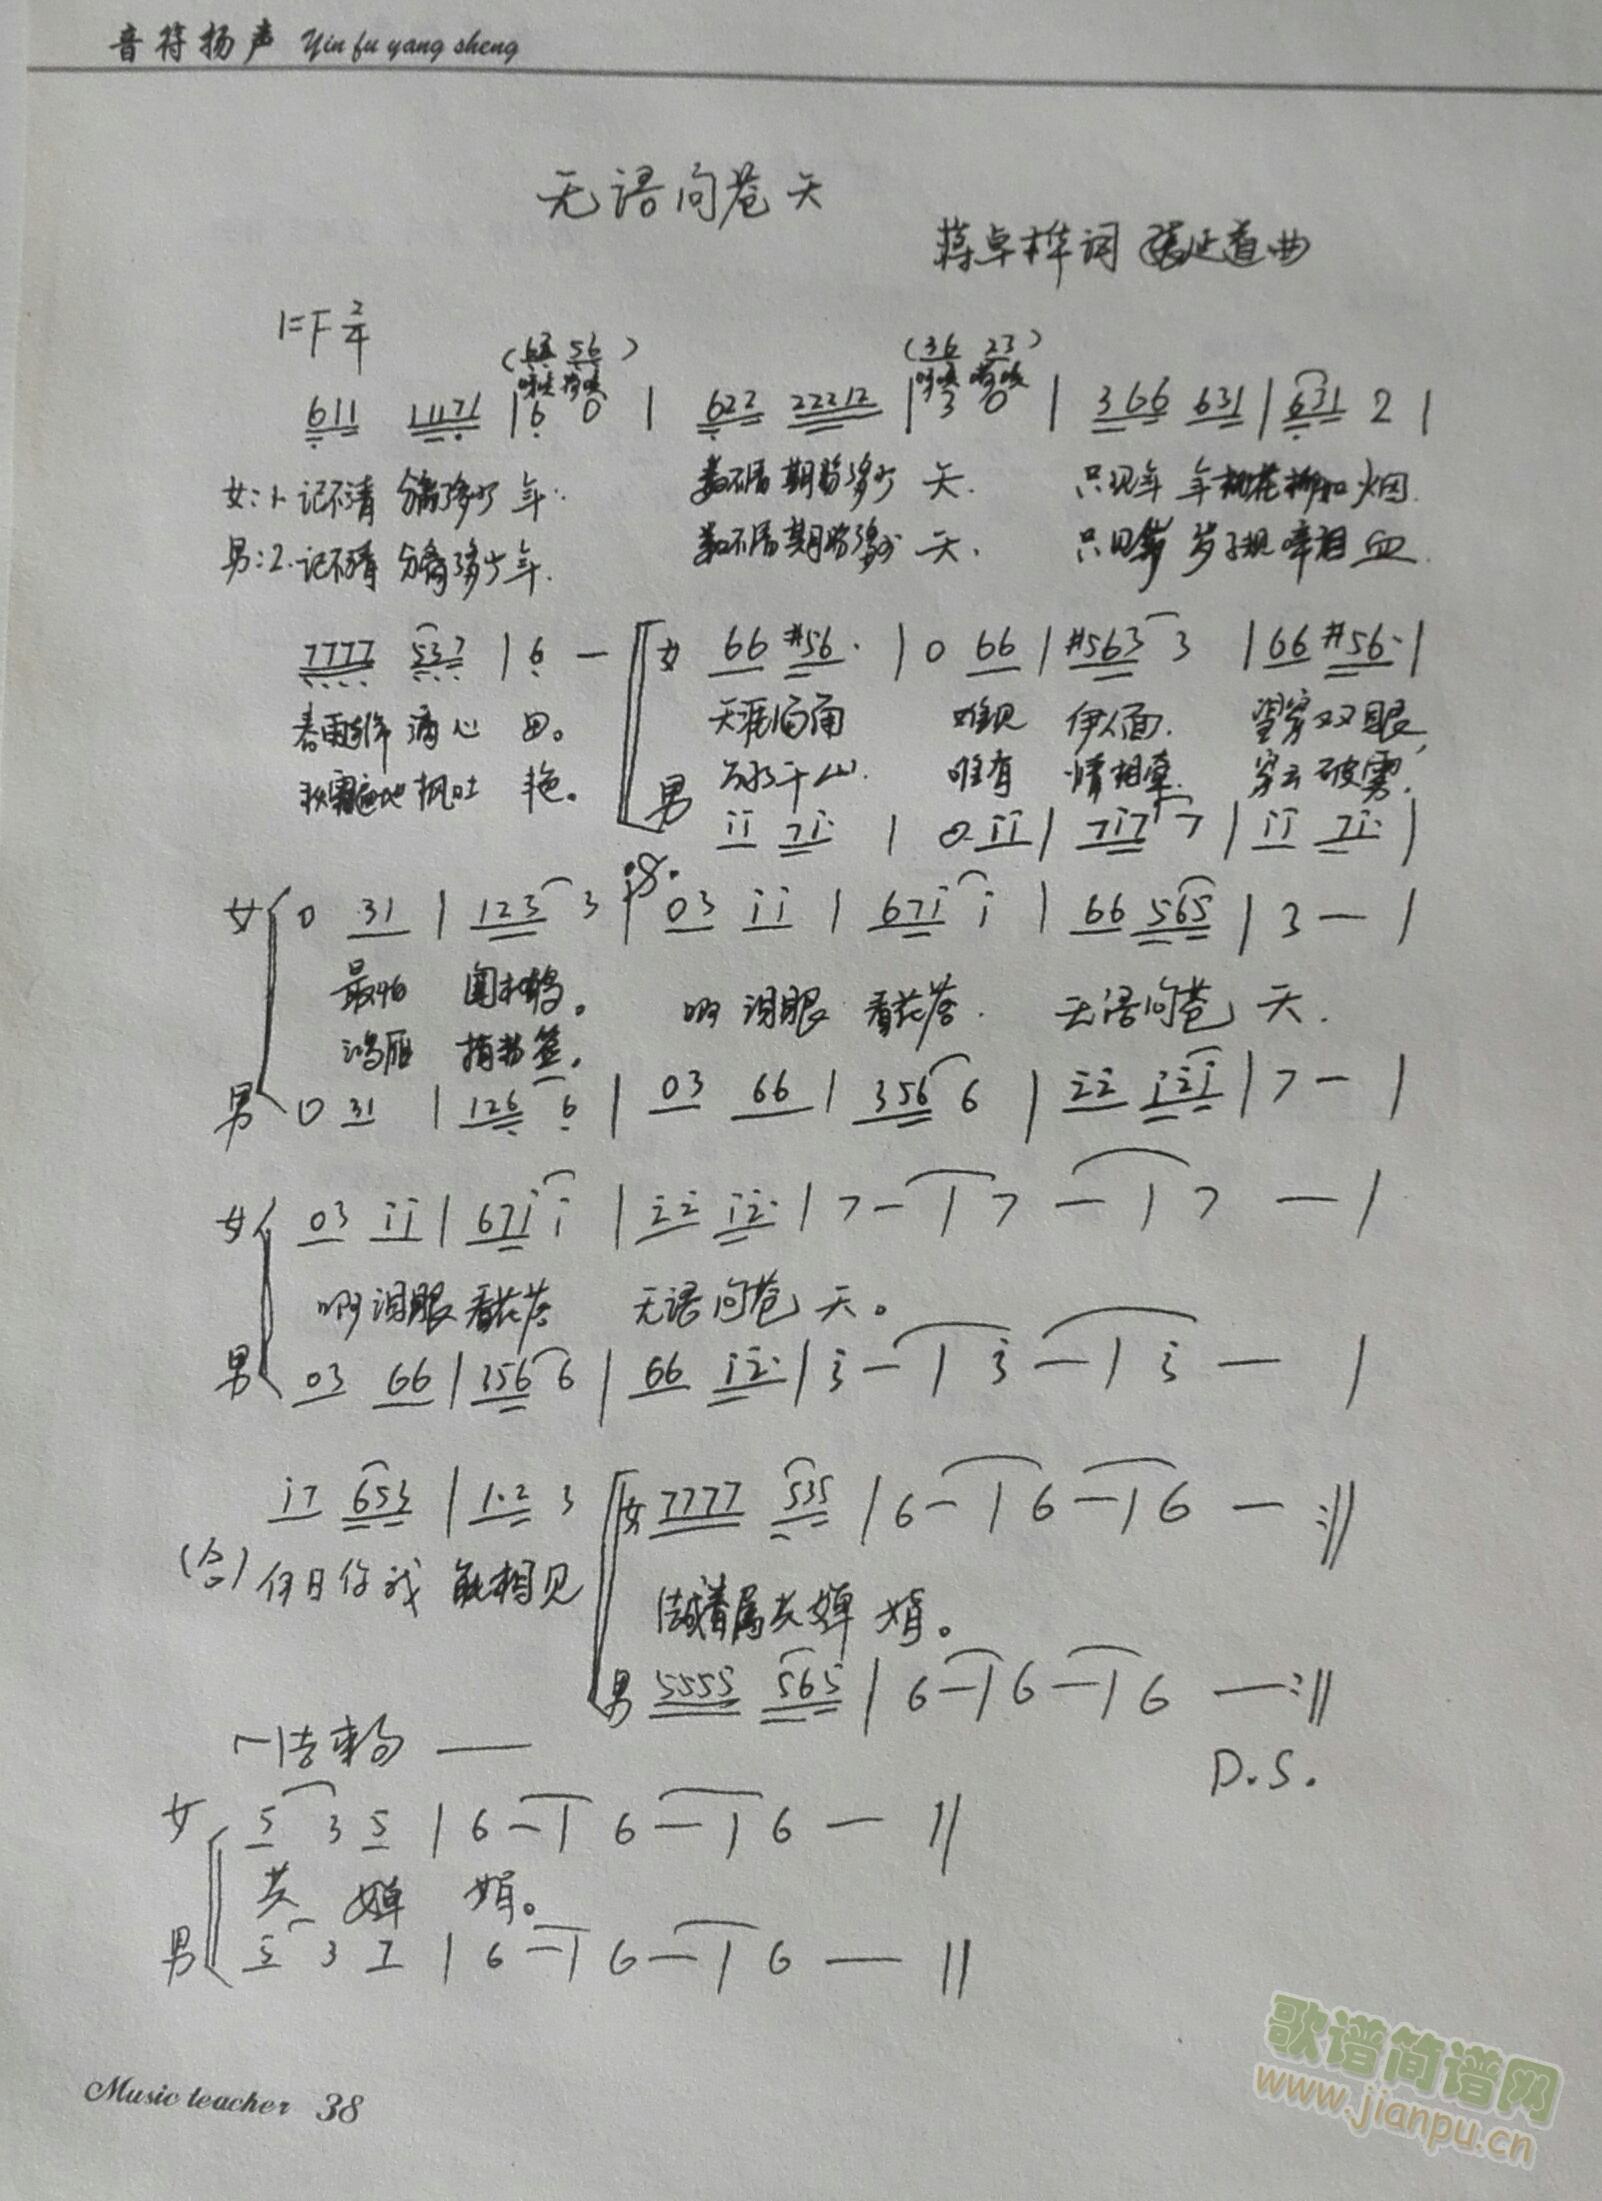 音符扬声 Yin fu yang sheng
无语问苍天
蒋卓桦词 张延道曲
1=F 2/4
(63 56) (36 23)
611 11171 | 6 0 | 622 22212 | 3 0 | 366 631 | 631 2 |
女:1. 记不清 分离了多少 年. 数不尽 期盼了多少 天. 只见年 年桃花柳如烟.
男:2. 记不清 分离了多少年. 数不尽期盼了多少 天. 只见岁 岁子规啼相血.
7777 537 | 6 — 女 66 #56· | 0 66 | #563 3 | 66 #56· |
春雨 滴心 田。 天涯 难见 伊人面. 望穿双眼,
遍地枫吐 艳。 男 千山. 唯有 情相牵. 穿云破雾.
i i 7i· | 0 i i | 7i7 7 | i i 7i· |
女 0 31 | 123 3 | 03 i i | 67i i | 66 565 | 3 — |
最怕 闻 。 啊 泪眼 看花落. 无语问苍 天.
鸿雁 捎书笺。
男 0 31 | 126 6 | 03 66 | 356 6 | 2 2 i2i | 7 — |
女 03 i i | 67i i | 2 2 i2· | 7 — | 7 — | 7 — |
啊 泪眼 看花落 无语问苍 天。
男 03 66 | 356 6 | 66 i2· | 3 — | 3 — | 3 — |
i7 653 | 1·2 3 女 7777 535 | 6 — | 6 — | 6 — :||
(合) 何日你我 能相见 属共婵 娟。
男 5555 565 | 6 — | 6 — | 6 — :||
结束句 ——
D.S.
女 5 3 5 | 6 — | 6 — | 6 — ||
共 婵 娟。
男 5 3 7 | 6 — | 6 — | 6 — ||
Music teacher 38
歌谱简谱网
www.jianpu.cn